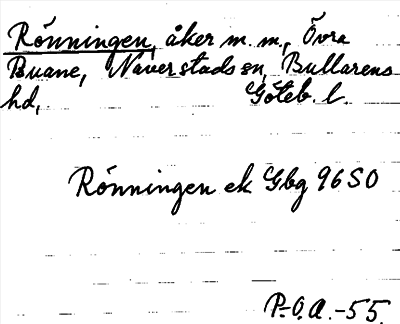 Rönningen, åker m.m., Övra
Buane, Naverstads sn, Bullarens
hd, Göteb. l.
Rönningen ek Gbg 96 SO
P.O.A. -55.